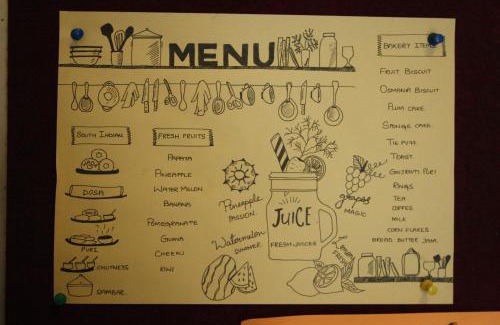 MENU
SOUTH INDIAN
DOSA
PURI
CHUTNEYS
SAMBAR
FRESH FRUITS
PAPAYA
PINEAPPLE
WATER MELON
BANANA
POMEGRANATE
GUAVA
CHEEKU
KIWI
Pineapple
PASSION
Watermelon
SUMMER
JUICE
FRESH JUICES
grapes
MAGIC
BAKERY ITEMS
FRUIT BISCUIT
OSMANIA BISCUIT
PLUM CAKE
SPONGE CAKE
TOAST
GUJARATI PURI
RINGS
TEA
COFFEE
MILK
CORN FLAKES
BREAD BUTTER JAM